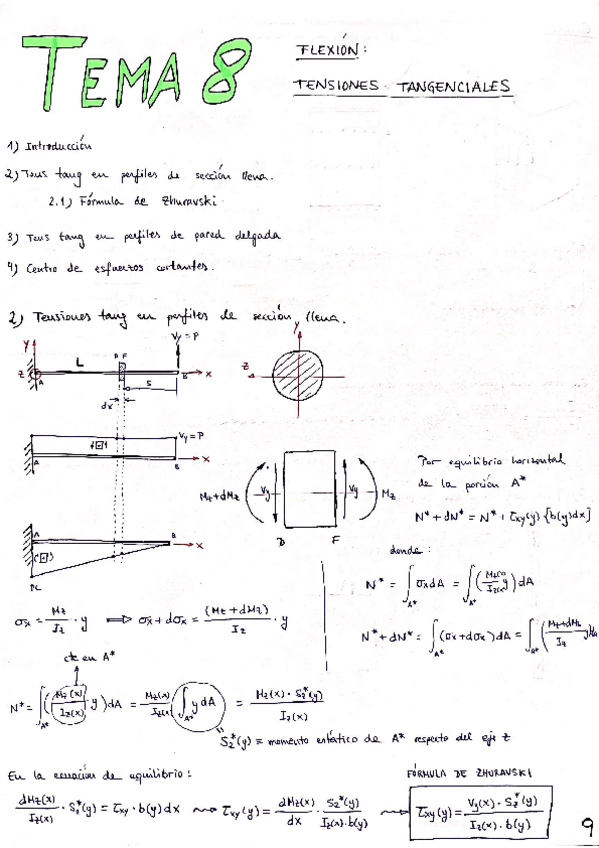 TEMA 8
FLEXIÓN:
TENSIONES TANGENCIALES
1) Introducción
2) Tens tang en perfiles de sección llena.
2.1) Fórmula de Zhuravski.
3) Tens tang en perfiles de pared delgada
4) Centro de esfuerzos cortantes.
2) Tensiones tang en perfiles de sección llena.
y
Vy = P
y
L
D F
z
A
B
x
z
S
dx
Vy = P
A
B
x
Mz+dMz
Vy
Vy
Mz
D
F
Por equilibrio horizontal
de la porción A*
N* + dN* = N* + τxy(y) [b(y)dx]
A
B
x
(+)
PL
donde:
N* = ∫A* σx dA = ∫A* (Mz(x)/Iz(x) y) dA
σx = Mz/Iz · y ⟹ σx + dσx = (Mz + dMz)/Iz · y
N* + dN* = ∫A* (σx + dσx) dA = ∫A* (Mz+dMz/Iz y) dA
cte en A*
N* = ∫A* (Mz(x)/Iz(x) · y) dA = Mz(x)/Iz(x) ∫A* y dA = Mz(x) · Sz*(y)/Iz(x)
Sz*(y) = momento estático de A* respecto del eje z
En la ecuación de equilibrio:
FÓRMULA DE ZHURAVSKI
dMz(x)/Iz(x) · Sz*(y) = τxy · b(y) dx ⇝ τxy(y) = dMz(x)/dx · Sz*(y)/Iz(x)·b(y) ⇝ τxy(y) = Vy(x) · Sz*(y)/Iz(x) · b(y)
9